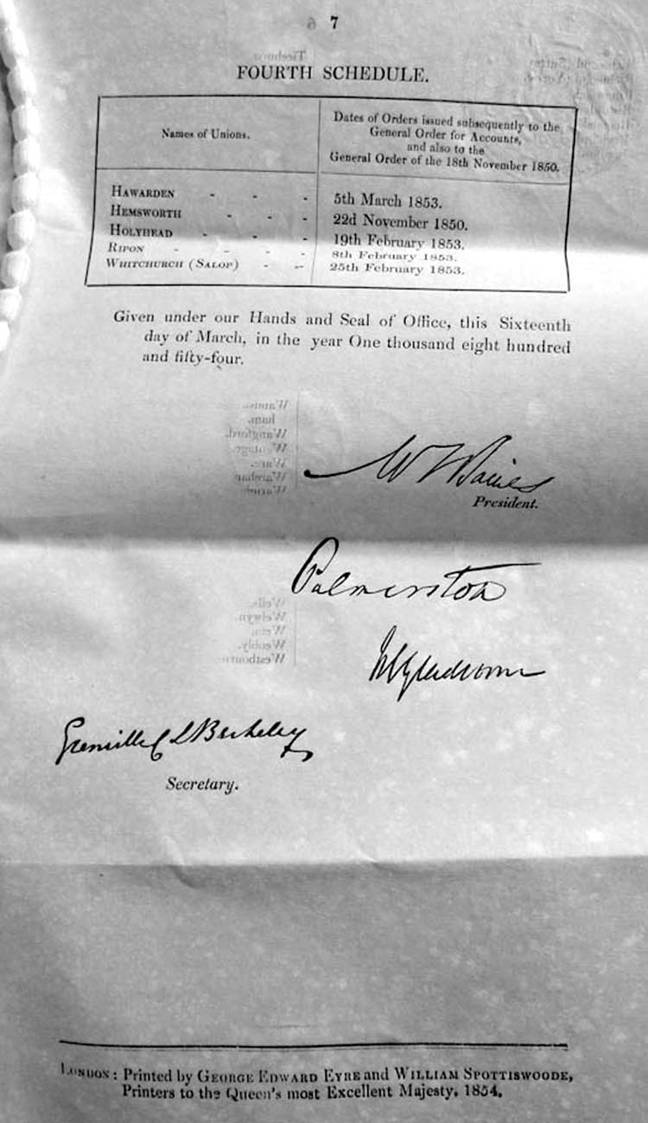 7
FOURTH SCHEDULE.
Names of Unions.
Dates of Orders issued subsequently to the
General Order for Accounts,
and also to the
General Order of the 18th November 1850.
HAWARDEN - - - 5th March 1853.
HEMSWORTH - - - 22d November 1850.
HOLYHEAD - - - 19th February 1853.
RIPON - - - - 8th February 1853.
WHITCHURCH (SALOP) - - 25th February 1853.
Given under our Hands and Seal of Office, this Sixteenth
day of March, in the year One thousand eight hundred
and fifty-four.
M T Baines
President.
Palmerston
W Gladstone
Grenville C L Berkeley
Secretary.
LONDON: Printed by GEORGE EDWARD EYRE and WILLIAM SPOTTISWOODE,
Printers to the Queen's most Excellent Majesty. 1854.